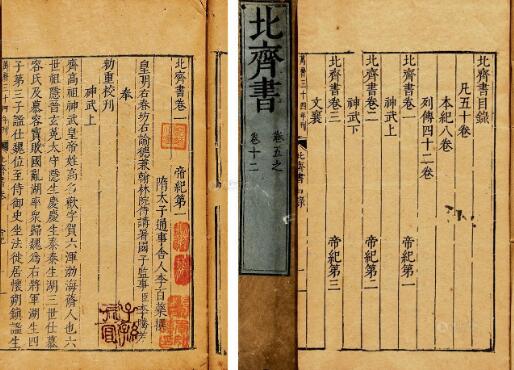 北齊書卷一 帝紀第一
隋太子通事舍人李百藥撰
皇明右春坊右諭德兼翰林院侍講署國子監事臣李騰芳
奉
勅重校刊
神武上
齊高祖神武皇帝姓高名歡字賀六渾渤海蓨人也六
世祖隱晉玄菟太守隱生慶慶生泰泰生湖三世仕慕
容氏及慕容寶敗國亂湖率衆歸魏為右將軍湖生四
子第三子謐仕魏位至侍御史坐法徙居懷朔鎮謐生
萬曆三十四年刊
北齊書卷
北齊書
卷五之
卷十二
北齊書目錄
凡五十卷
本紀八卷
列傳四十二卷
北齊書卷一 帝紀第一
神武上
北齊書卷二 帝紀第二
神武下
北齊書卷三 帝紀第三
文襄
萬曆三十四年刊
北齊書目錄